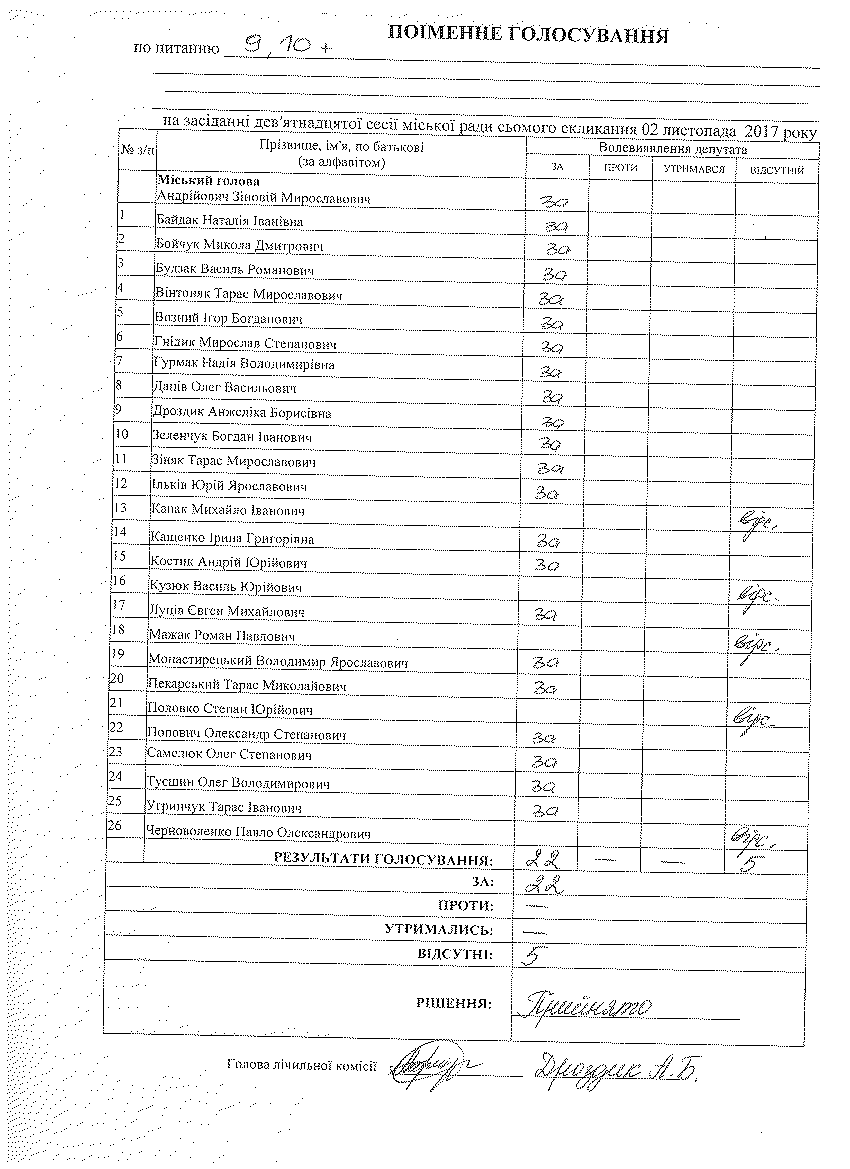 ПОІМЕННЕ ГОЛОСУВАННЯ
по питанню 9, 10 +
на засіданні дев'ятнадцятої сесії міської ради сьомого скликання 02 листопада 2017 року
№ з/п Прізвище, ім'я, по батькові (за алфавітом) Волевиявлення депутата
ЗА ПРОТИ УТРИМАВСЯ ВІДСУТНІЙ
Міський голова
Андрійович Зіновій Мирославович за
1 Байдак Наталія Іванівна за
2 Бойчук Микола Дмитрович за
3 Булзак Василь Романович за
4 Вінтоняк Тарас Мирославович за
5 Возний Ігор Богданович за
6 Гнідик Мирослав Степанович за
7 Гурмак Надія Володимирівна за
8 Данів Олег Васильович за
9 Дроздик Анжеліка Борисівна за
10 Зеленчук Богдан Іванович за
11 Зіняк Тарас Мирославович за
12 Ільків Юрій Ярославович за
13 Капак Михайло Іванович відс.
14 Кащенко Ірина Григорівна за
15 Костик Андрій Юрійович за
16 Кузюк Василь Юрійович відс.
17 Луців Євген Михайлович за
18 Мажак Роман Павлович відс.
19 Монастирецький Володимир Ярославович за
20 Пекарський Тарас Миколайович за
21 Половко Степан Юрійович відс.
22 Попович Олександр Степанович за
23 Самелюк Олег Степанович за
24 Тусшин Олег Володимирович за
25 Угринчук Тарас Іванович за
26 Черноволенко Павло Олександрович відс.
РЕЗУЛЬТАТИ ГОЛОСУВАННЯ: 22 — — 5
ЗА: 22
ПРОТИ: —
УТРИМАЛИСЬ: —
ВІДСУТНІ: 5
РІШЕННЯ: Прийнято
Голова лічильної комісії Дроздик А.Б.